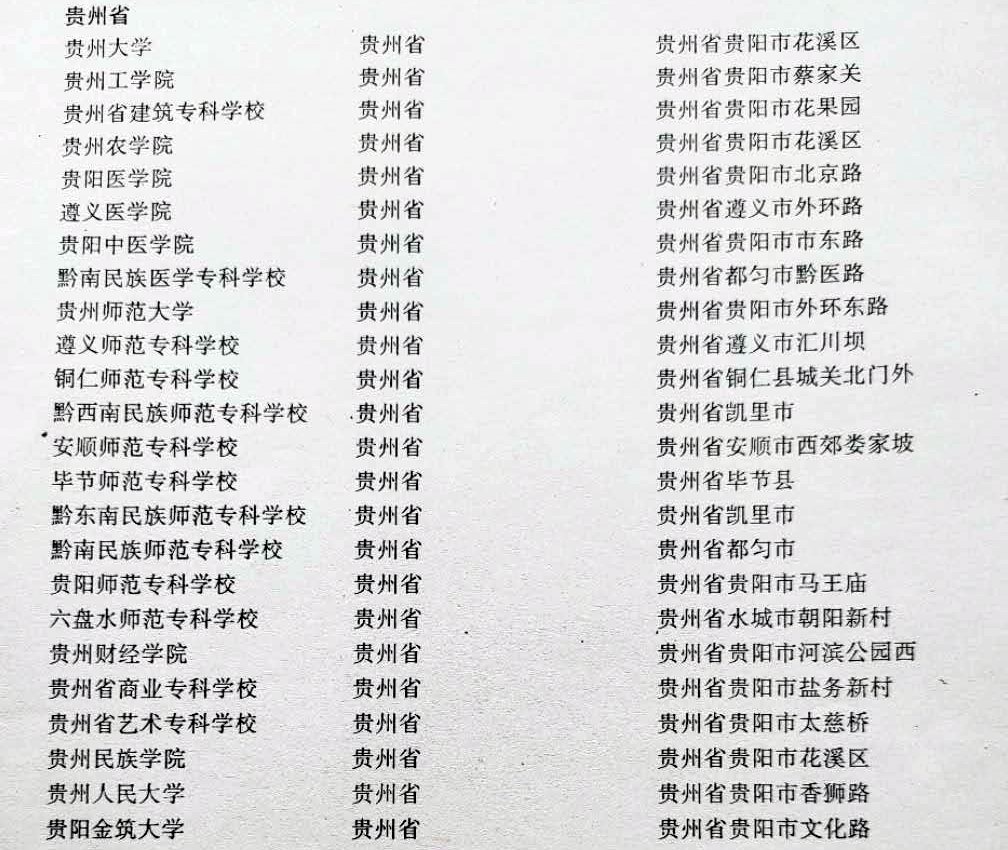 贵州省
贵州大学 贵州省 贵州省贵阳市花溪区
贵州工学院 贵州省 贵州省贵阳市蔡家关
贵州省建筑专科学校 贵州省 贵州省贵阳市花果园
贵州农学院 贵州省 贵州省贵阳市花溪区
贵阳医学院 贵州省 贵州省贵阳市北京路
遵义医学院 贵州省 贵州省遵义市外环路
贵阳中医学院 贵州省 贵州省贵阳市市东路
黔南民族医学专科学校 贵州省 贵州省都匀市黔医路
贵州师范大学 贵州省 贵州省贵阳市外环东路
遵义师范专科学校 贵州省 贵州省遵义市汇川坝
铜仁师范专科学校 贵州省 贵州省铜仁县城关北门外
黔西南民族师范专科学校 贵州省 贵州省凯里市
安顺师范专科学校 贵州省 贵州省安顺市西郊娄家坡
毕节师范专科学校 贵州省 贵州省毕节县
黔东南民族师范专科学校 贵州省 贵州省凯里市
黔南民族师范专科学校 贵州省 贵州省都匀市
贵阳师范专科学校 贵州省 贵州省贵阳市马王庙
六盘水师范专科学校 贵州省 贵州省水城市朝阳新村
贵州财经学院 贵州省 贵州省贵阳市河滨公园西
贵州省商业专科学校 贵州省 贵州省贵阳市盐务新村
贵州省艺术专科学校 贵州省 贵州省贵阳市太慈桥
贵州民族学院 贵州省 贵州省贵阳市花溪区
贵州人民大学 贵州省 贵州省贵阳市香狮路
贵阳金筑大学 贵州省 贵州省贵阳市文化路